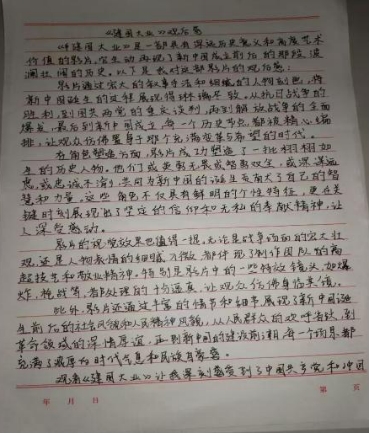 《建国大业》观后感
《建国大业》是一部具有深远历史意义和高度艺术
价值的影片,它生动再现了新中国成立前后的那段波
澜壮阔的历史。以下是我对这部影片的观后感:
影片通过宏大的叙事手法和细腻的人物刻画,将
新中国诞生的过程展现得淋漓尽致。从抗日战争的
胜利,到国共两党的重庆谈判,再到解放战争的全面
爆发,最后到新中国成立,每一个历史节点都被精心编
排,让观众仿佛置身于那个充满变革与希望的时代。
在角色塑造方面,影片成功塑造了一批栩栩如
生的历史人物。他们或英勇无畏或智勇双全,或深谋远
虑,或忠诚不渝,共同为新中国的诞生贡献了自己的智
慧和力量。这些角色不仅具有鲜明的个性特征,更在关
键时刻展现出了坚定的信仰和无私的奉献精神,让
人深受感动。
影片的视觉效果也值得一提。无论是战争场面的宏大壮
观,还是人物表情的细腻入微,都体现了制作团队的高
超技艺和敬业精神。特别是影片中的一些特效镜头,如爆
炸,枪战等,都处理的十分逼真,让观众仿佛身临其境。
此外,影片还通过丰富的情节和细节,展现了新中国诞
生前后的社会风貌和人民精神风貌,从人民群众的欢呼雀跃,到
革命领袖的深情厚谊,再到新中国的建设前景,每一个场景都
充满了浓厚的时代气息和民族自豪感。
观看《建国大业》让我深刻感受到了中国共产党和中国
年 月 日 第 页